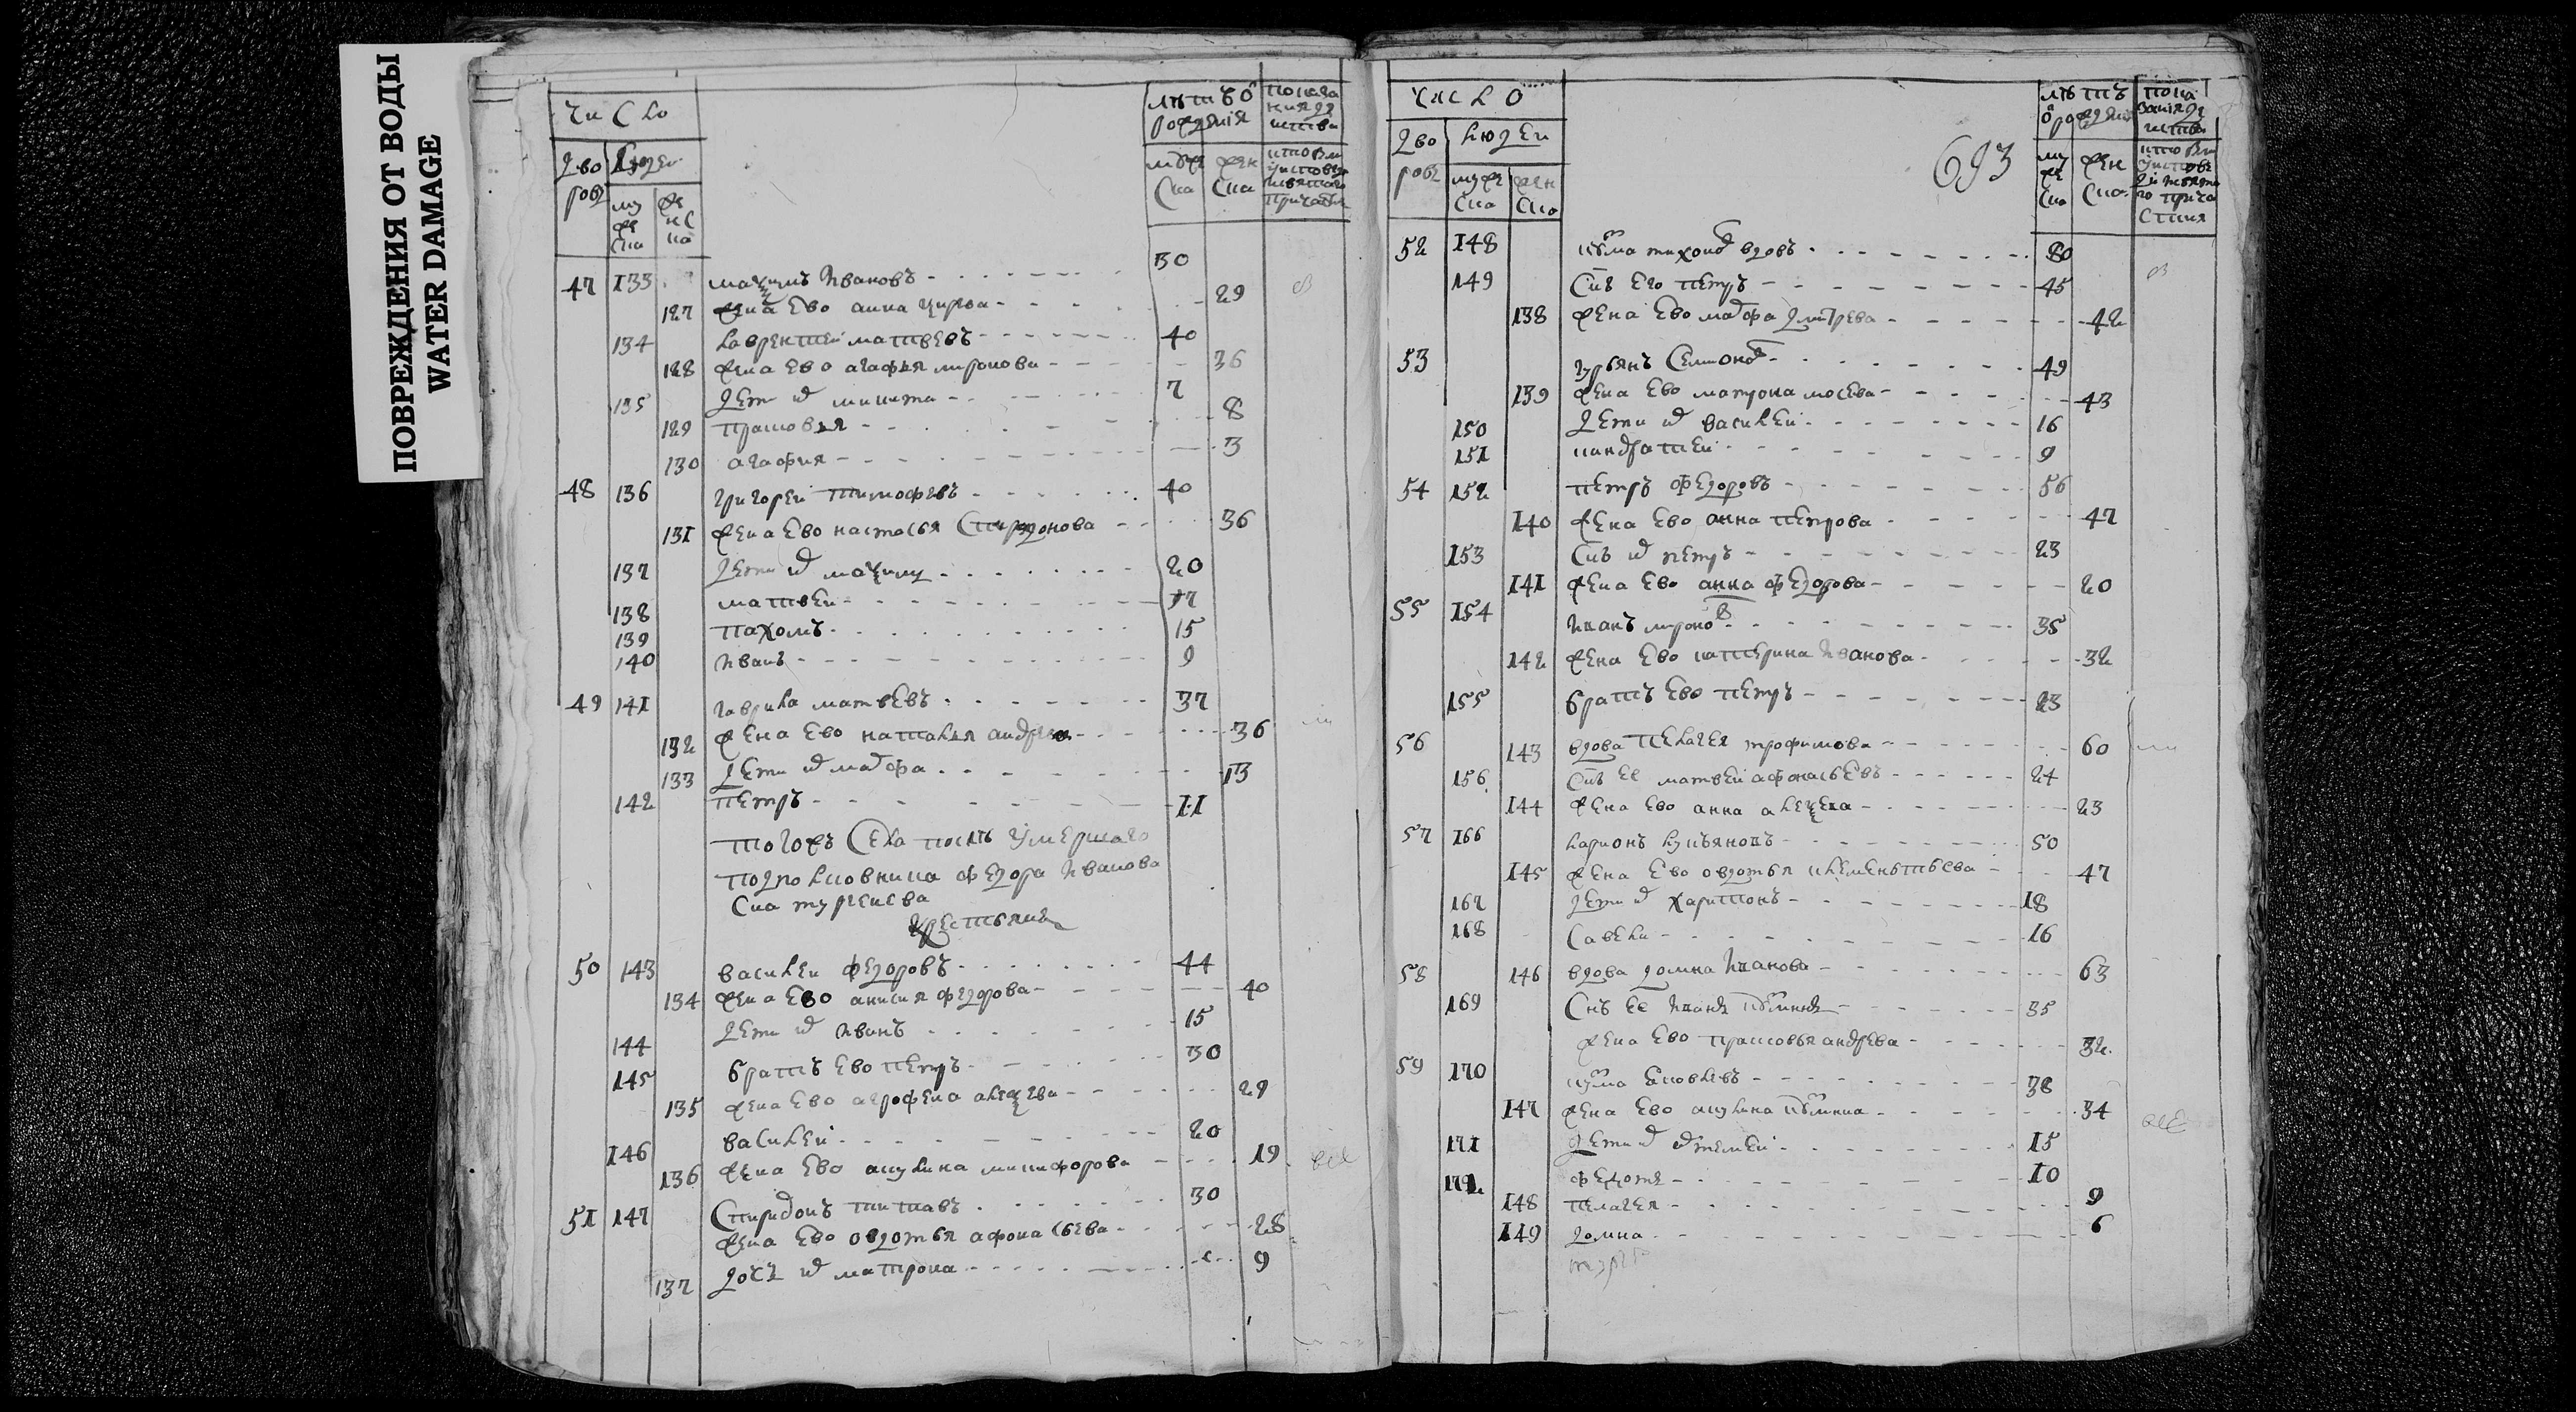 ПОВРЕЖДЕНИЯ ОТ ВОДЫ
WATER DAMAGE
число
лѣтъ ѿ рождения
дворовъ
людеи
мужеска
женска
мужеска
женска
47 133 максимъ Ивановъ 30
127 жена Ево анна 29
134 лаврентеи матвеевъ 40
128 жена Ево агафья миронова 36
135 дети их никита 7
129 прасковья 8
130 агафия 3
48 136 григореи тимофѣвъ 40
131 жена Ево настасья Спиридонова 36
137 дети их максимъ 20
138 матвеи 17
139 пахомъ 15
140 Иванъ 9
49 141 гаврила матвѣевъ 37
132 жена Ево наталья андреева 36
133 дети их марфа 13
142 петръ 11
тогожъ Села послѣ умершаго
подполковника Федора Иванова
Сна тургенева
Крестьяня
50 143 василеи Федоровъ 44
134 жена Ево анисия федорова 40
144 дети их Иванъ 15
145 братъ Ево петръ 30
135 жена Ево агрофена алексѣева 29
146 василеи 20
136 жена Ево акулина никифорова 19 все
51 147 Спиридонъ титавъ 30
жена Ево овдотья афонасьева 28
137 дочь их матрона 9
число
лѣтъ ѿ рождения
дворовъ
людеи
мужеска
женска
мужеска
женска
693
52 148 кузма тихонов вдовъ 80
149 Снъ Его петръ 45
138 жена Ево марфа дмитрева 42
53 гурьянъ Семионов 49
139 жена Ево матрона мосеева 43
150 дети их василеи 16
151 кандратеи 9
54 152 петръ Федоровъ 56
140 жена Ево анна петрова 47
153 Снъ их петръ 23
141 жена Ево анна Федорова 20
55 154 Иванъ миронов 35
142 жена Ево катерина Иванова 32
155 братъ Ево петръ 23
56 143 вдова пелагея трофимова 60
156 Снъ Ее матвеи афонасьевъ 24
144 жена Ево анна алексеева 23
57 166 ларионъ лукьяновъ 50
145 жена Ево овдотья клементьева 47
167 дети их харитонъ 18
168 Савели 16
58 146 вдова домна Иванова 63
169 Снъ Ее Иванъ кузминъ 35
жена Ево прасковья андрева 32
59 170 кузма Яковлевъ 38
147 жена Ево акулина кузмина 34 все
171 дети их артемеи 15
172 федотъ 10
148 пелагея 9
149 домна 6